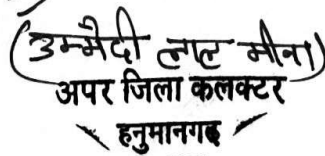 (उम्मैदी लाल मीना)
अपर जिला कलक्टर
हनुमानगढ